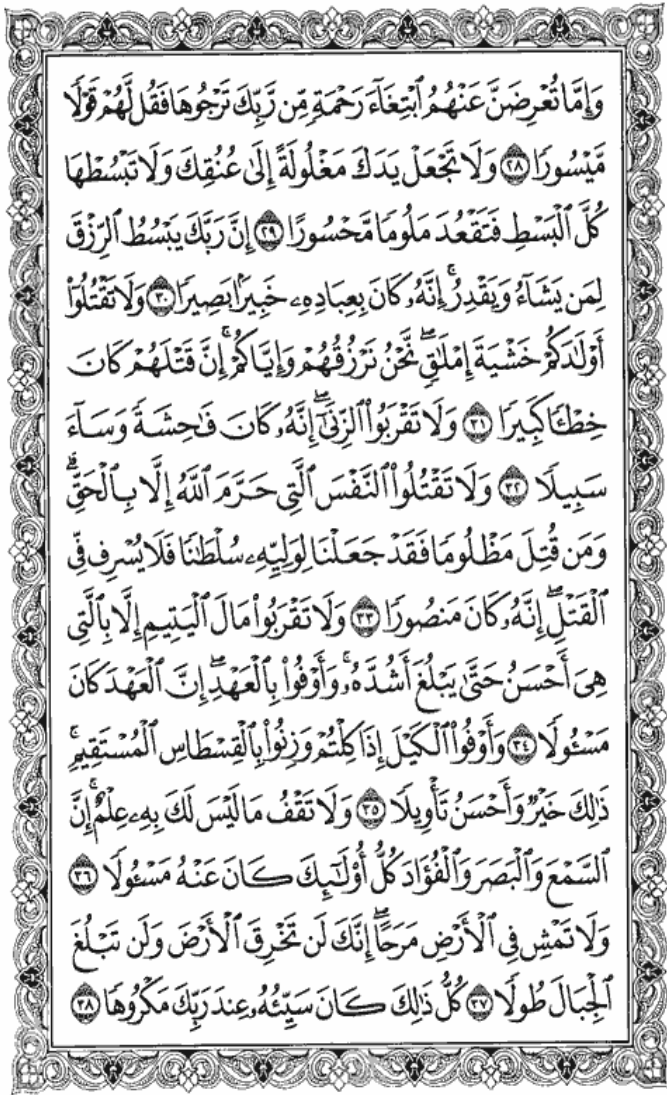 وَإِمَّا تُعْرِضَنَّ عَنْهُمُ ٱبْتِغَآءَ رَحْمَةٍ مِّن رَّبِّكَ تَرْجُوهَا فَقُل لَّهُمْ قَوْلًا
مَّيْسُورًا ٢٨ وَلَا تَجْعَلْ يَدَكَ مَغْلُولَةً إِلَىٰ عُنُقِكَ وَلَا تَبْسُطْهَا
كُلَّ ٱلْبَسْطِ فَتَقْعُدَ مَلُومًا مَّحْسُورًا ٢٩ إِنَّ رَبَّكَ يَبْسُطُ ٱلرِّزْقَ
لِمَن يَشَآءُ وَيَقْدِرُ ۚ إِنَّهُۥ كَانَ بِعِبَادِهِۦ خَبِيرًۢا بَصِيرًا ٣٠ وَلَا تَقْتُلُوٓا۟
أَوْلَٰدَكُمْ خَشْيَةَ إِمْلَٰقٍ ۖ نَّحْنُ نَرْزُقُهُمْ وَإِيَّاكُمْ ۚ إِنَّ قَتْلَهُمْ كَانَ
خِطْـًٔا كَبِيرًا ٣١ وَلَا تَقْرَبُوا۟ ٱلزِّنَىٰٓ ۖ إِنَّهُۥ كَانَ فَٰحِشَةً وَسَآءَ
سَبِيلًا ٣٢ وَلَا تَقْتُلُوا۟ ٱلنَّفْسَ ٱلَّتِى حَرَّمَ ٱللَّهُ إِلَّا بِٱلْحَقِّ ۗ
وَمَن قُتِلَ مَظْلُومًا فَقَدْ جَعَلْنَا لِوَلِيِّهِۦ سُلْطَٰنًا فَلَا يُسْرِف فِّى
ٱلْقَتْلِ ۖ إِنَّهُۥ كَانَ مَنصُورًا ٣٣ وَلَا تَقْرَبُوا۟ مَالَ ٱلْيَتِيمِ إِلَّا بِٱلَّتِى
هِىَ أَحْسَنُ حَتَّىٰ يَبْلُغَ أَشُدَّهُۥ ۚ وَأَوْفُوا۟ بِٱلْعَهْدِ ۖ إِنَّ ٱلْعَهْدَ كَانَ
مَسْـُٔولًا ٣٤ وَأَوْفُوا۟ ٱلْكَيْلَ إِذَا كِلْتُمْ وَزِنُوا۟ بِٱلْقِسْطَاسِ ٱلْمُسْتَقِيمِ ۚ
ذَٰلِكَ خَيْرٌ وَأَحْسَنُ تَأْوِيلًا ٣٥ وَلَا تَقْفُ مَا لَيْسَ لَكَ بِهِۦ عِلْمٌ ۚ إِنَّ
ٱلسَّمْعَ وَٱلْبَصَرَ وَٱلْفُؤَادَ كُلُّ أُو۟لَٰٓئِكَ كَانَ عَنْهُ مَسْـُٔولًا ٣٦
وَلَا تَمْشِ فِى ٱلْأَرْضِ مَرَحًا ۖ إِنَّكَ لَن تَخْرِقَ ٱلْأَرْضَ وَلَن تَبْلُغَ
ٱلْجِبَالَ طُولًا ٣٧ كُلُّ ذَٰلِكَ كَانَ سَيِّئُهُۥ عِندَ رَبِّكَ مَكْرُوهًا ٣٨